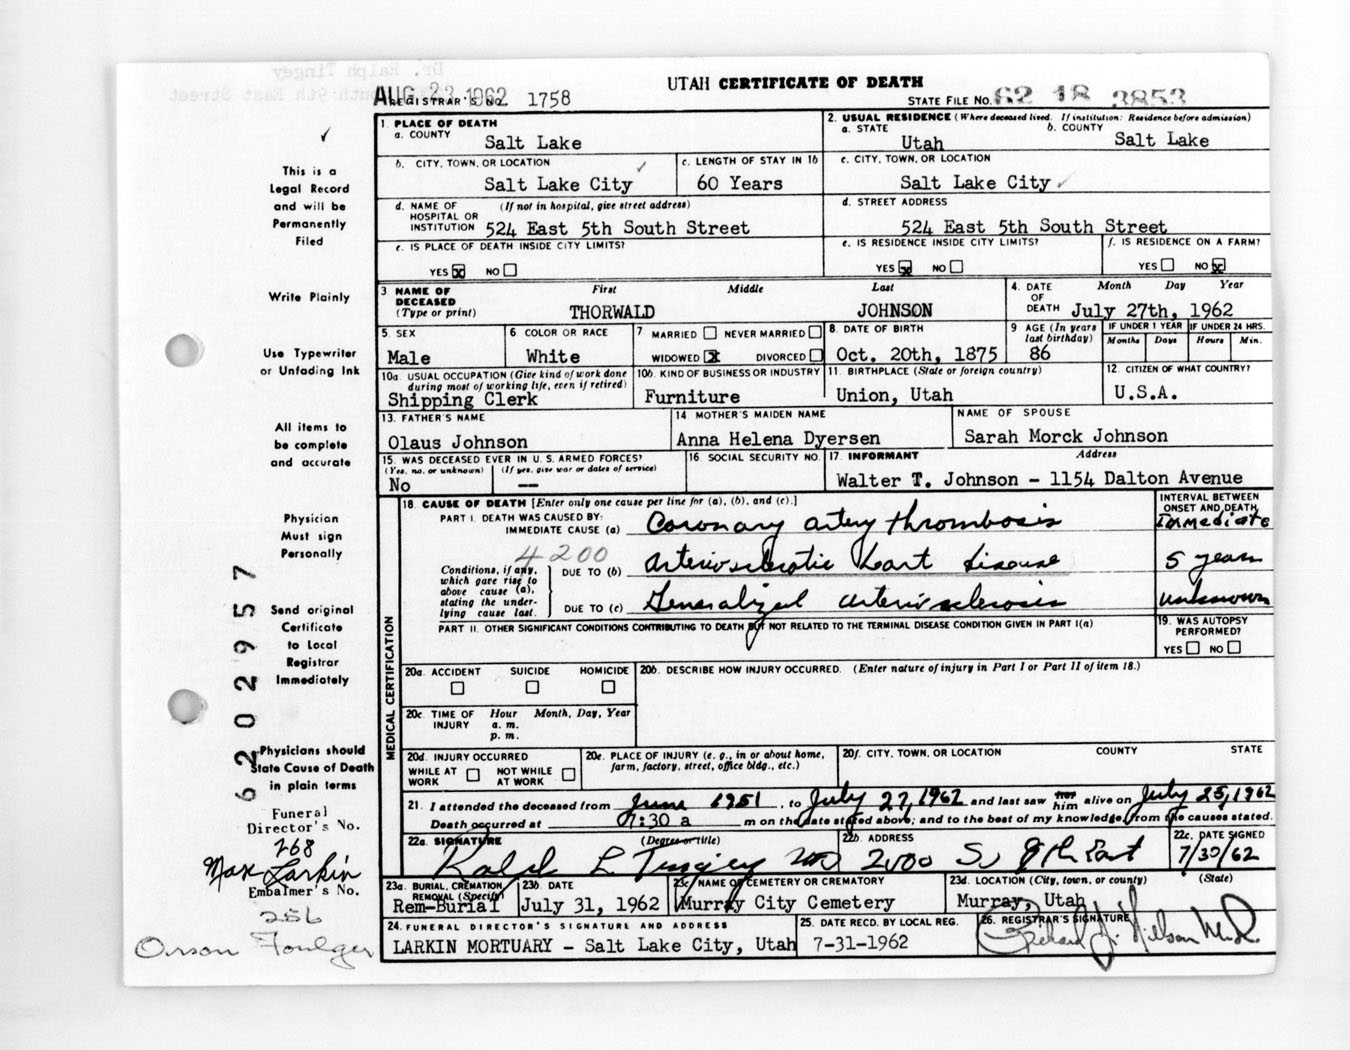 AUG 23 1962
REGISTRAR'S NO. 1758
UTAH CERTIFICATE OF DEATH
STATE FILE NO. 62 18 3853
This is a
Legal Record
and will be
Permanently
Filed
Write Plainly
Use Typewriter
or Unfading Ink
All items to
be complete
and accurate
Physician
Must sign
Personally
Send original
Certificate
to Local
Registrar
Immediately
Physicians should
State Cause of Death
in plain terms
Funeral
Director's No.
268
Max Larkin
Embalmer's No.
256
Orson Foulger
6202957
1. PLACE OF DEATH
a. COUNTY
Salt Lake
2. USUAL RESIDENCE (Where deceased lived. If institution: Residence before admission)
a. STATE Utah
b. COUNTY Salt Lake
b. CITY, TOWN, OR LOCATION
Salt Lake City
c. LENGTH OF STAY IN 1b
60 Years
c. CITY, TOWN, OR LOCATION
Salt Lake City
d. NAME OF HOSPITAL OR INSTITUTION (If not in hospital, give street address)
524 East 5th South Street
d. STREET ADDRESS
524 East 5th South Street
e. IS PLACE OF DEATH INSIDE CITY LIMITS?
YES ☒ NO ☐
e. IS RESIDENCE INSIDE CITY LIMITS?
YES ☒ NO ☐
f. IS RESIDENCE ON A FARM?
YES ☐ NO ☒
3 NAME OF DECEASED (Type or print)
First Middle Last
THORWALD JOHNSON
4. DATE OF DEATH Month Day Year
July 27th, 1962
5. SEX
Male
6 COLOR OR RACE
White
7 MARRIED ☐ NEVER MARRIED ☐
WIDOWED ☒ DIVORCED ☐
8. DATE OF BIRTH
Oct. 20th, 1875
9 AGE (In years last birthday)
86
IF UNDER 1 YEAR
Months Days
IF UNDER 24 HRS.
Hours Min.
10a. USUAL OCCUPATION (Give kind of work done during most of working life, even if retired)
Shipping Clerk
10b. KIND OF BUSINESS OR INDUSTRY
Furniture
11. BIRTHPLACE (State or foreign country)
Union, Utah
12. CITIZEN OF WHAT COUNTRY?
U.S.A.
13. FATHER'S NAME
Olaus Johnson
14 MOTHER'S MAIDEN NAME
Anna Helena Dyersen
NAME OF SPOUSE
Sarah Morck Johnson
15. WAS DECEASED EVER IN U. S. ARMED FORCES?
(Yes, no, or unknown) (If yes, give war or dates of service)
No --
16. SOCIAL SECURITY NO.
17. INFORMANT Address
Walter T. Johnson - 1154 Dalton Avenue
MEDICAL CERTIFICATION
18. CAUSE OF DEATH [Enter only one cause per line for (a), (b), and (c).]
INTERVAL BETWEEN ONSET AND DEATH
PART I. DEATH WAS CAUSED BY:
IMMEDIATE CAUSE (a) Coronary artery thrombosis Immediate
4200
Conditions, if any, which gave rise to above cause (a), stating the underlying cause last.
DUE TO (b) Arteriosclerotic heart disease 5 years
DUE TO (c) Generalized arteriosclerosis unknown
PART II. OTHER SIGNIFICANT CONDITIONS CONTRIBUTING TO DEATH BUT NOT RELATED TO THE TERMINAL DISEASE CONDITION GIVEN IN PART I(a)
19. WAS AUTOPSY PERFORMED?
YES ☐ NO ☐
20a. ACCIDENT SUICIDE HOMICIDE
☐ ☐ ☐
20b. DESCRIBE HOW INJURY OCCURRED. (Enter nature of injury in Part I or Part II of item 18.)
20c. TIME OF INJURY Hour Month, Day, Year
a. m.
p. m.
20d. INJURY OCCURRED
WHILE AT WORK ☐ NOT WHILE AT WORK ☐
20e. PLACE OF INJURY (e. g., in or about home, farm, factory, street, office bldg., etc.)
20f. CITY, TOWN, OR LOCATION COUNTY STATE
21. I attended the deceased from June 1951, to July 27, 1962 and last saw him alive on July 25, 1962
Death occurred at 7:30 a m on the date stated above; and to the best of my knowledge, from the causes stated.
22a. SIGNATURE (Degree or title)
Ralph L Tingey MD
22b. ADDRESS
2000 So 9th East
22c. DATE SIGNED
7/30/62
23a. BURIAL, CREMATION REMOVAL (Specify)
Rem-Burial
23b. DATE
July 31, 1962
23c NAME OF CEMETERY OR CREMATORY
Murray City Cemetery
23d. LOCATION (City, town, or county) (State)
Murray, Utah
24. FUNERAL DIRECTOR'S SIGNATURE AND ADDRESS
LARKIN MORTUARY - Salt Lake City, Utah
25. DATE RECD. BY LOCAL REG.
7-31-1962
26. REGISTRAR'S SIGNATURE